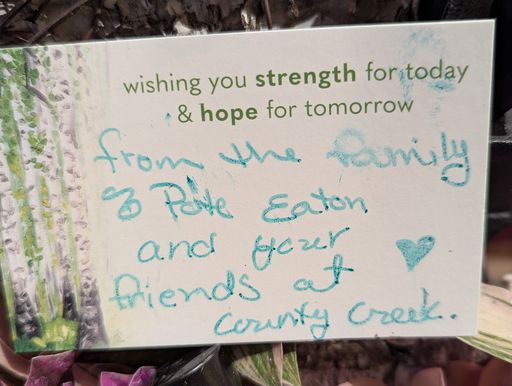 wishing you strength for today
& hope for tomorrow
from the family
& Pete Eaton
and your
friends at
County Creek.